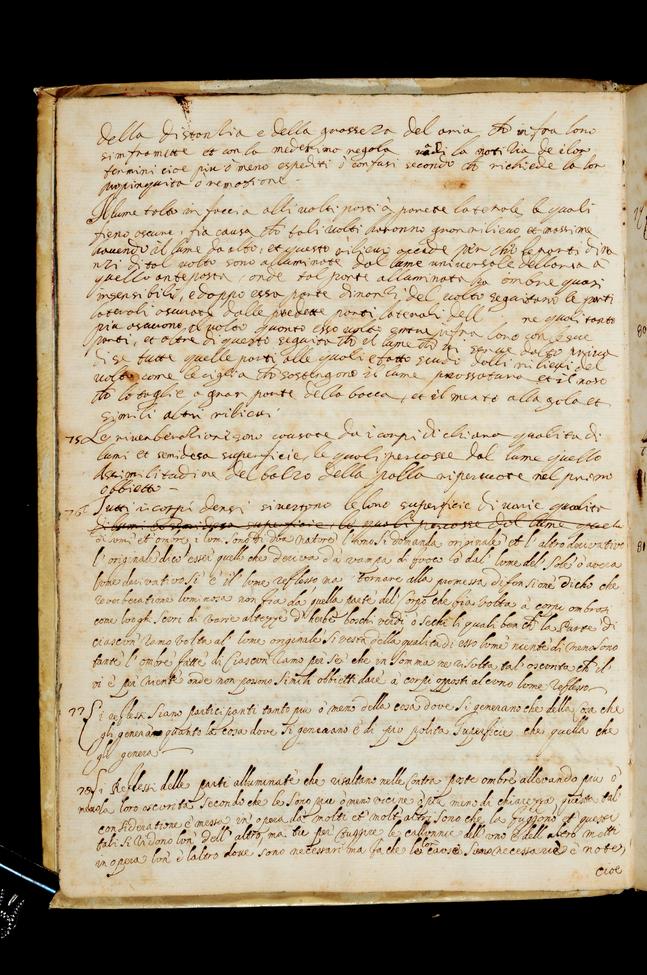 della distantia e della grossezza del aria, ch in fra loro
si inframette et con la medesimo regola vedi la notitia de i lor
termini cioe piu o meno espediti o confusi secondo ch richiede la lor
propinquita o remotione
Il lume tolto in faccia alli volti posti a parete laterale le quali
sieno oscure, fia causa ch tali volti haranno gran rilievo et massime
havendo il lume da alto, et questo rilievo accade per ch le parti dina
nzi di tal volto sono alluminate dal lume universale dell aria a
quello anteposta, onde tal parte alluminata ha ombre quasi
insensibili, e doppo essa parte dinanzi del volto seguitano le parti
laterali oscurate dalle predette parti laterali dell ne quali tanto
piu oscurono, il volto quanto esso volto entra infra loro con le sue
parti, et oltre di questo seguita ch il lume ch
di se tutte quelle parti alle quali e fatto scudo dalli rilievi del
volto come le ciglia ch sostengono il lume et il naso
ch lo toglie a gran parte della bocca, et il mento alla gola et
simili altri rilievi
75 Le riverberationi sono causate da i corpi di chiara qualita di
lumi et semidesa superficie, le quali percosse dal lume quello
a similitudine del balzo della palla ripercuote nel primo
obbietto
76 Tutti i corpi densi si vertono le loro superficie di varie qualita
di lumi et semidesa superficie, le quali percosse dal lume quelo
di lumi et ombre, i lumi sono di dua nature l'uno si domanda originale et l'altro derivativo
l'originale dico essere quello che deriva da vampa di fuoco o dal lume del sole o aerea
lume derivativo si e il lume reflesso ma tornare alla promessa difinsione dicho che
reverberatione luminosa non fia da quella parte del corpo che fia volta a corpi ombrosi
come luoghi scuri di varie altezze d'herbe boschi verdi o secchi li quali ben ch la parte di
ciascun ramo volta al lume originale si vesta della qualita di esso lume niente di meno sono
tante l'ombre fatte di ciascun ramo per se che in somma ne risolta tal oscurita ch il
vi e per niente onde non possono simili obbietti dare a corpi opposti alcuno lume reflesso
77 I reflessi siano participanti tanto piu o meno della cosa dove si generano che della cosa che
gli genera quanto la cosa dove si generano e di piu polita superficie che quella che
gli genera
78 I Reflessi delle parti alluminate che risaltano nelle contra poste ombre allevando piu o
meno la loro oscurita secondo che le sono piu o meno vicine piu meno di chiarezza, questa tal
consideratione e messa in opera da molti et molti altri sono che la fuggono et questi
tali si ridono lun dell' altro, ma tu per fuggire le calunnie dell'uno e dell altro metti
in opera lun e laltro dove sono necessari ma fa che le lor cause sieno e note
cioe